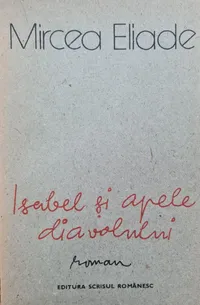 Mircea Eliade
Isabel și apele
diavolului
roman
EDITURA SCRISUL ROMÂNESC